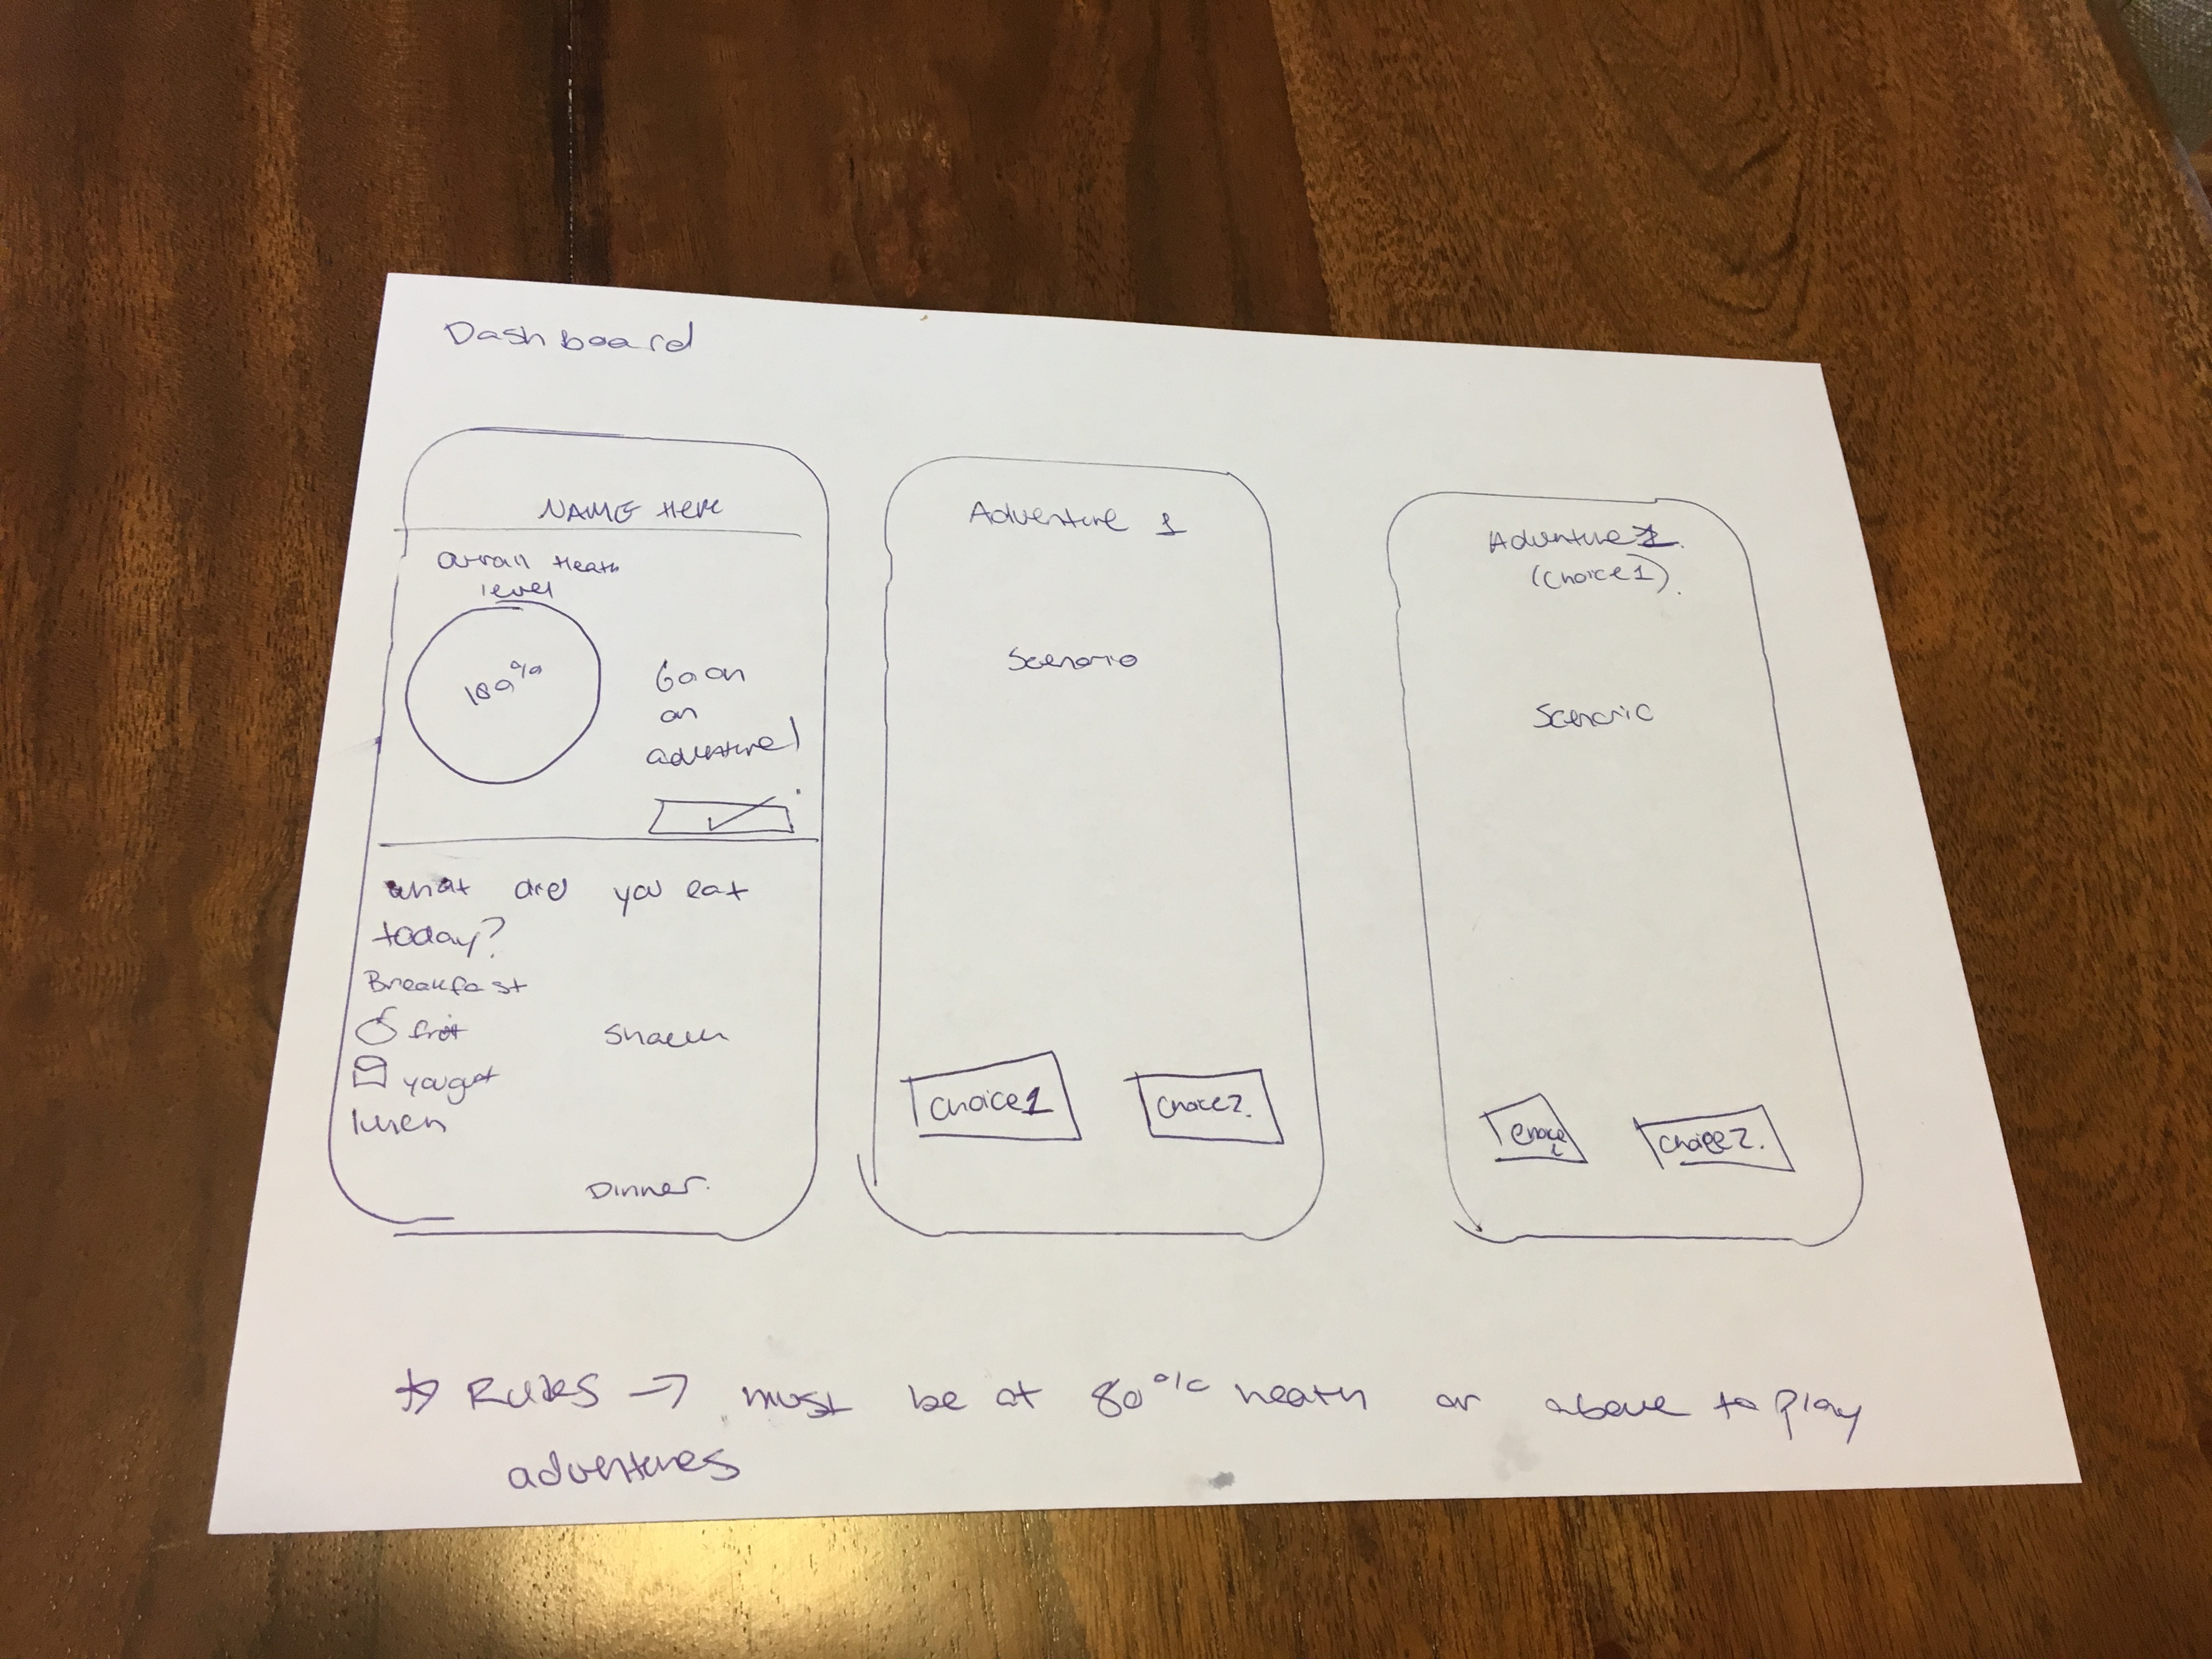 Dashboard
NAME Here
Overall Heath
level
100%
Go on
an
adventure!
what did you eat
today?
Breakfast
fruit
Snack
yougut
lunch
Dinner.
Adventure 1
Scenario
Choice 1
Choice 2.
Adventure 1.
(Choice 1).
Scenario
Choice
1
Choice 2.
* Rules → must be at 80% heath or above to play
adventures